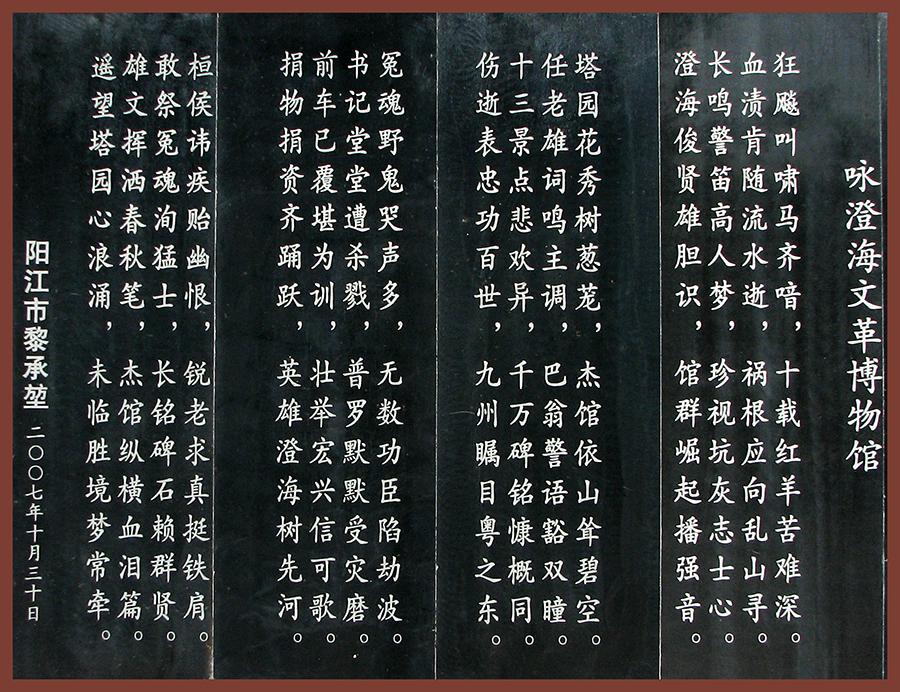 咏澄海文革博物馆
狂飚叫啸马齐喑，十载红羊苦难深。
血渍肯随流水逝，祸根应向乱山寻。
长鸣警笛高人梦，珍视坑灰志士心。
澄海俊贤雄胆识，馆群崛起播强音。
塔园花秀树葱茏，杰馆依山耸碧空。
任老雄词鸣主调，巴翁警语豁双瞳。
十三景点悲欢异，千万碑铭慷概同。
伤逝表忠功百世，九州瞩目粤之东。
冤魂野鬼哭声多，无数功臣陷劫波。
书记堂堂遭杀戮，普罗默默受灾磨。
前车已覆堪为训，壮举宏兴信可歌。
捐物捐资齐踊跃，英雄澄海树先河。
桓侯讳疾贻幽恨，锐老求真挺铁肩。
敢祭冤魂洵猛士，长铭碑石赖群贤。
雄文挥洒春秋笔，杰馆纵横血泪篇。
遥望塔园心浪涌，未临胜境梦常牵。
阳江市黎承堃 二〇〇七年十月三十日